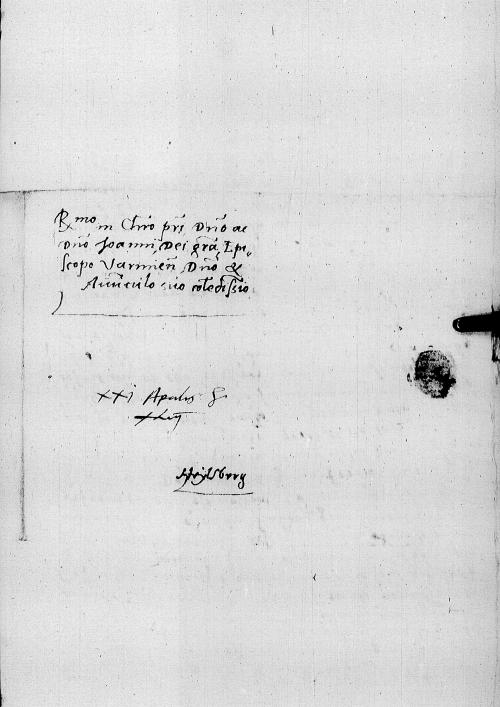 R.mo in Chro pri Dno ac
Dno Joanni, Dei gra, Epi-
scopo Varmien, Dno &
Avunculo suo colēdissio
XXI Aprilis
Heylsberg